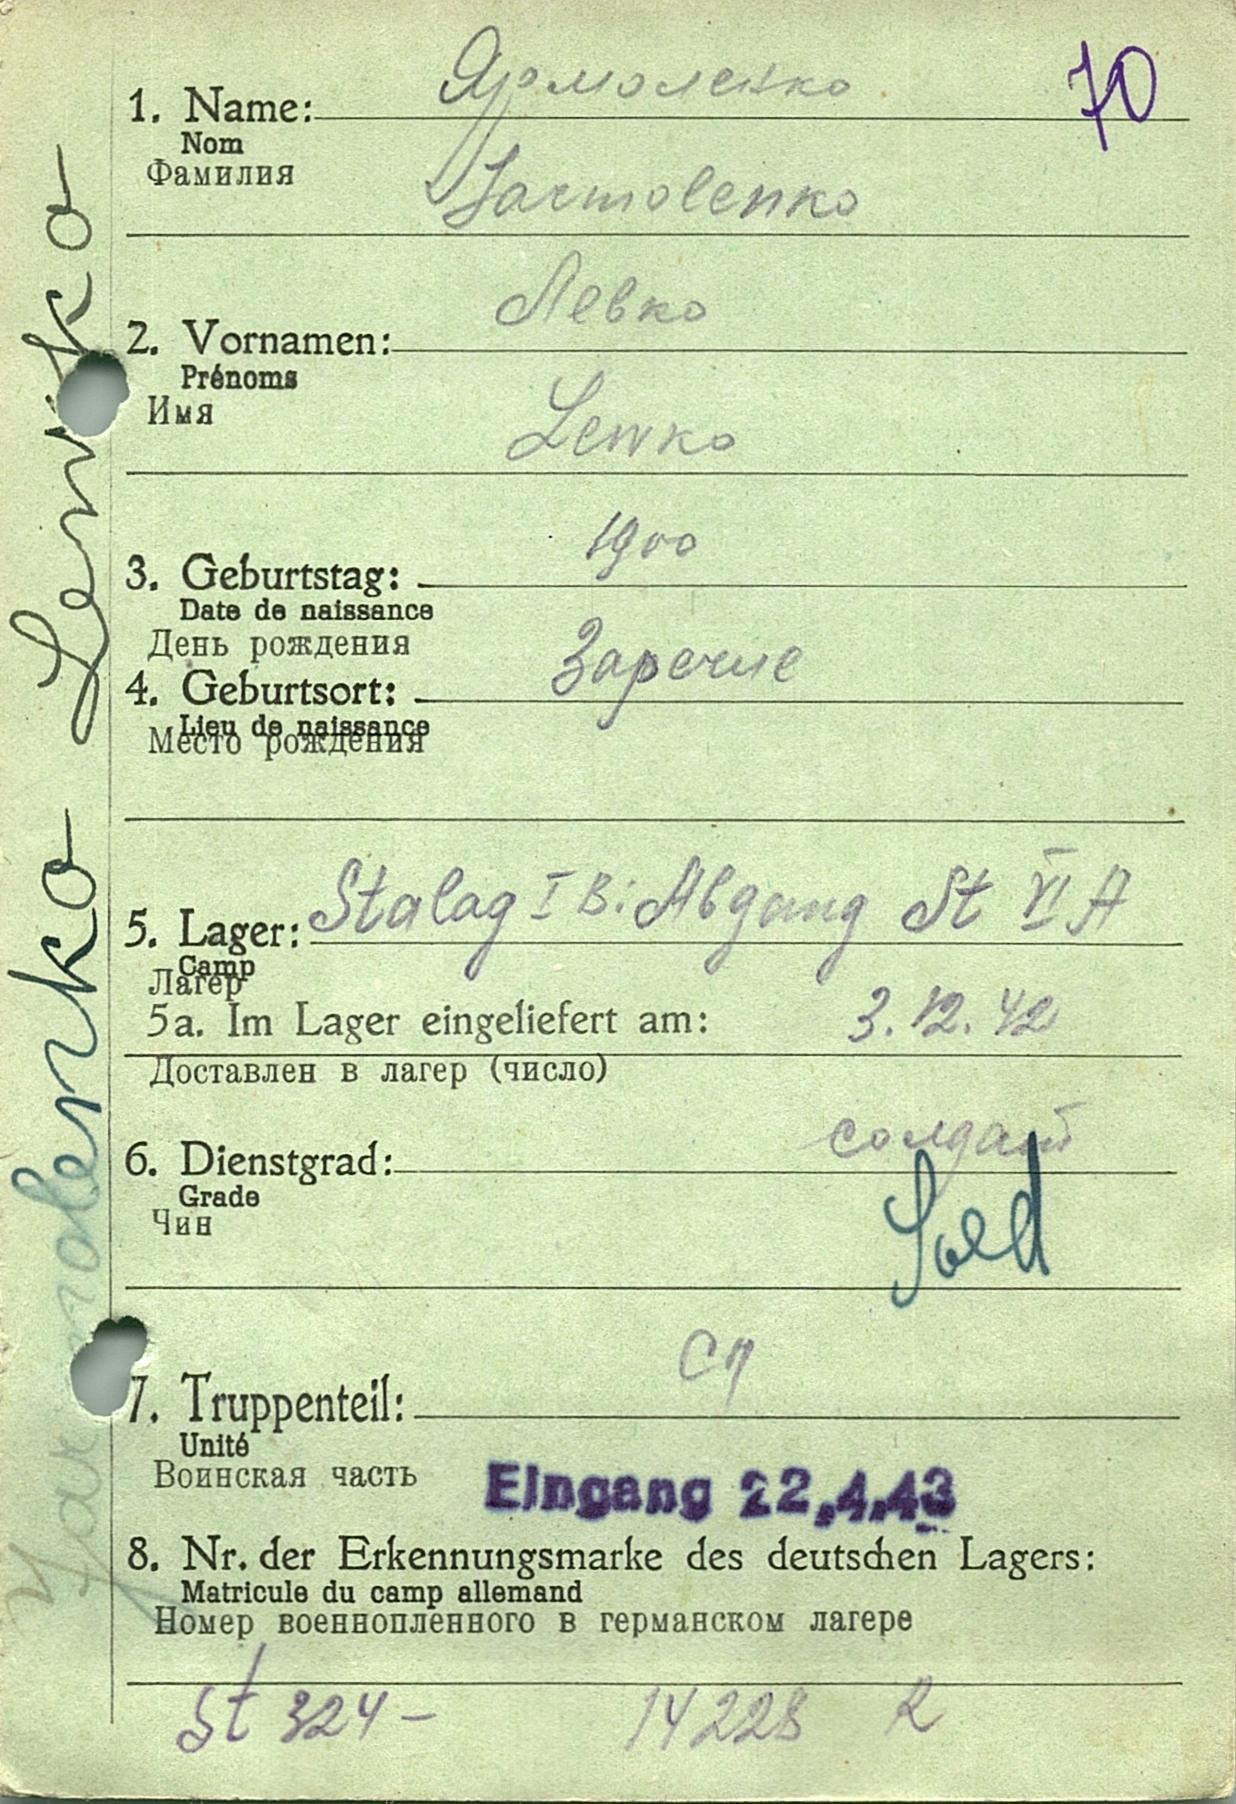 Ярмоленко
70
1. Name:
Nom
Фамилия
Jarmolenko
Левко
2. Vornamen:
Prénoms
Имя
Lewko
1900
3. Geburtstag:
Date de naissance
День рождения
Заречие
4. Geburtsort:
Lieu de naissance
Место рождения
5. Lager: Stalag I B: Abgang St VI A
Camp
Лагер
5a. Im Lager eingeliefert am: 3.12.42
Доставлен в лагер (число)
солдат
6. Dienstgrad:
Grade
Чин
Sold
сп
7. Truppenteil:
Unité
Воинская часть
Eingang 22.4.43
8. Nr. der Erkennungsmarke des deutschen Lagers:
Matricule du camp allemand
Номер военнопленного в германском лагере
St 324 - 14228 R
Jarmolenko Lewko